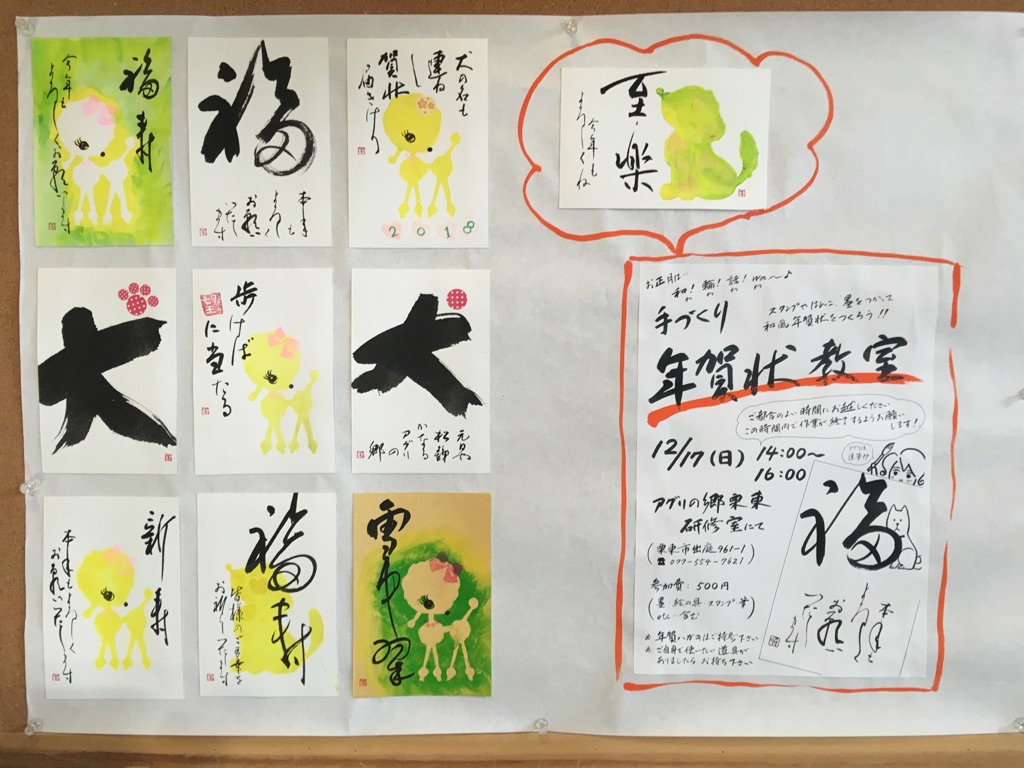 福寿
今年も
よろしくお願いします
福
本年も
よろしく
お願い
いたし
ます
犬の名も
連ね
し
賀状
届きけり
2018
至楽
今年も
よろしくね
犬
歩けば
に当たる
犬
元旦や
アグリ
の
郷
新寿
本年もよろしく
お願いいたします
福寿
皆様のご多幸を
お祈りいたします
お正月は
和!輪!話!wa〜♪
わ わ わ
手づくり
スタンプやはんこ、墨をつかって
和風年賀状をつくろう!!
年賀状教室
ご都合のよい時間にお越しください
この時間内で作業が終了するようお願い
します!
12/17(日)
14:00〜
16:00
アグリの郷栗東
研修室にて
(栗東市出庭961-1
☎077-554-7621)
参加費:500円
(墨 絵の具 スタンプ 筆
etc 含む)
※年賀ハガキはご持参下さい
※ご自身で使いたい道具が
ありましたらお持ち下さい
福
本年も
よろしく
お願い
いたします